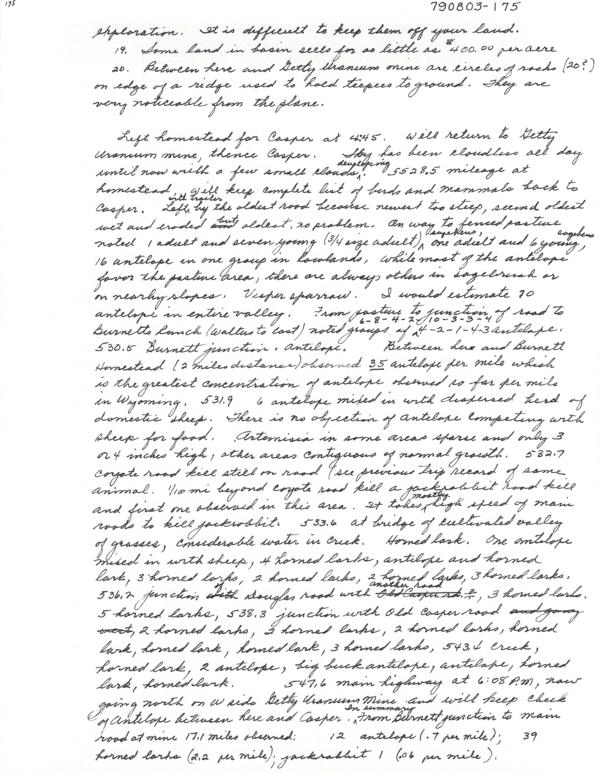 175
790803-175
exploration. It is difficult to keep them off your land.
19. Some land in basin sells for as little as $400.00 per acre
20. Between here and Getty Uranium mine are circles of rocks (20?)
on edge of a ridge used to hold teepees to ground. They are
very noticeable from the plane.
Left homestead for Casper at 4:45. Will return to Getty
Uranium mine, thence Casper. Sky has been cloudless all day
until now with a few small clouds developing. 5528.5 mileage at
homestead. Will keep complete list of birds and mammals back to
Casper. Left with trailer by the oldest road because newest too steep, second oldest
wet and eroded but oldest, no problem. On way to fenced pasture
noted 1 adult and seven young (3/4 size adult) sagehens, one adult and 6 young, sagehens
16 antelope in one group in lowlands, while most of the antelope
favor the pasture area, there are always others in sagebrush or
on nearby slopes. Vesper sparrow. I would estimate 70
antelope in entire valley. From pasture to junction of road to
Burnetts Ranch (Waltus to east) noted groups of 6-8-4-2-10-3-3-4 4-2-1-4-3 antelope.
530.5 Burnett junction. Antelope. Between here and Burnett
Homestead (2 miles distance) observed 35 antelope per mile which
is the greatest concentration of antelope observed so far per mile
in Wyoming. 531.9 6 antelope mixed in with dispersed herd of
domestic sheep. There is no objection of antelope competing with
sheep for food. Artemisia in some areas sparse and only 3
or 4 inches high, other areas contiguous of normal growth. 532.7
coyote road kill still on road (see previous trip record of same
animal. 1/10 mi beyond coyote road kill a jackrabbit road kill
and first one observed in this area. It takes mostly high speed of main
roads to kill jackrabbit. 533.6 at bridge of cultivated valley
of grasses, considerable water in creek. Horned lark. One antelope
mixed in with sheep, 4 horned larks, antelope and horned
lark, 3 horned larks, 2 horned larks, 2 horned larks, 3 horned larks.
536.2 junction of Douglas road with another road, 3 horned larks.
5 horned larks, 538.3 junction with Old Casper road and going
west, 2 horned larks, 2 horned larks, 2 horned larks, horned
lark, horned lark, horned lark, 3 horned larks, 543.4 creek,
horned lark, 2 antelope, big buck antelope, antelope, horned
lark, horned lark. 547.6 main highway at 6:08 P.M, now
going north on W side Getty Uranium Mine and will keep check
of Antelope between here and Casper. In summary From Burnett junction to main
road at mine 17.1 miles observed: 12 antelope (.7 per mile); 39
horned larks (2.2 per mile); jackrabbit 1 (.06 per mile).